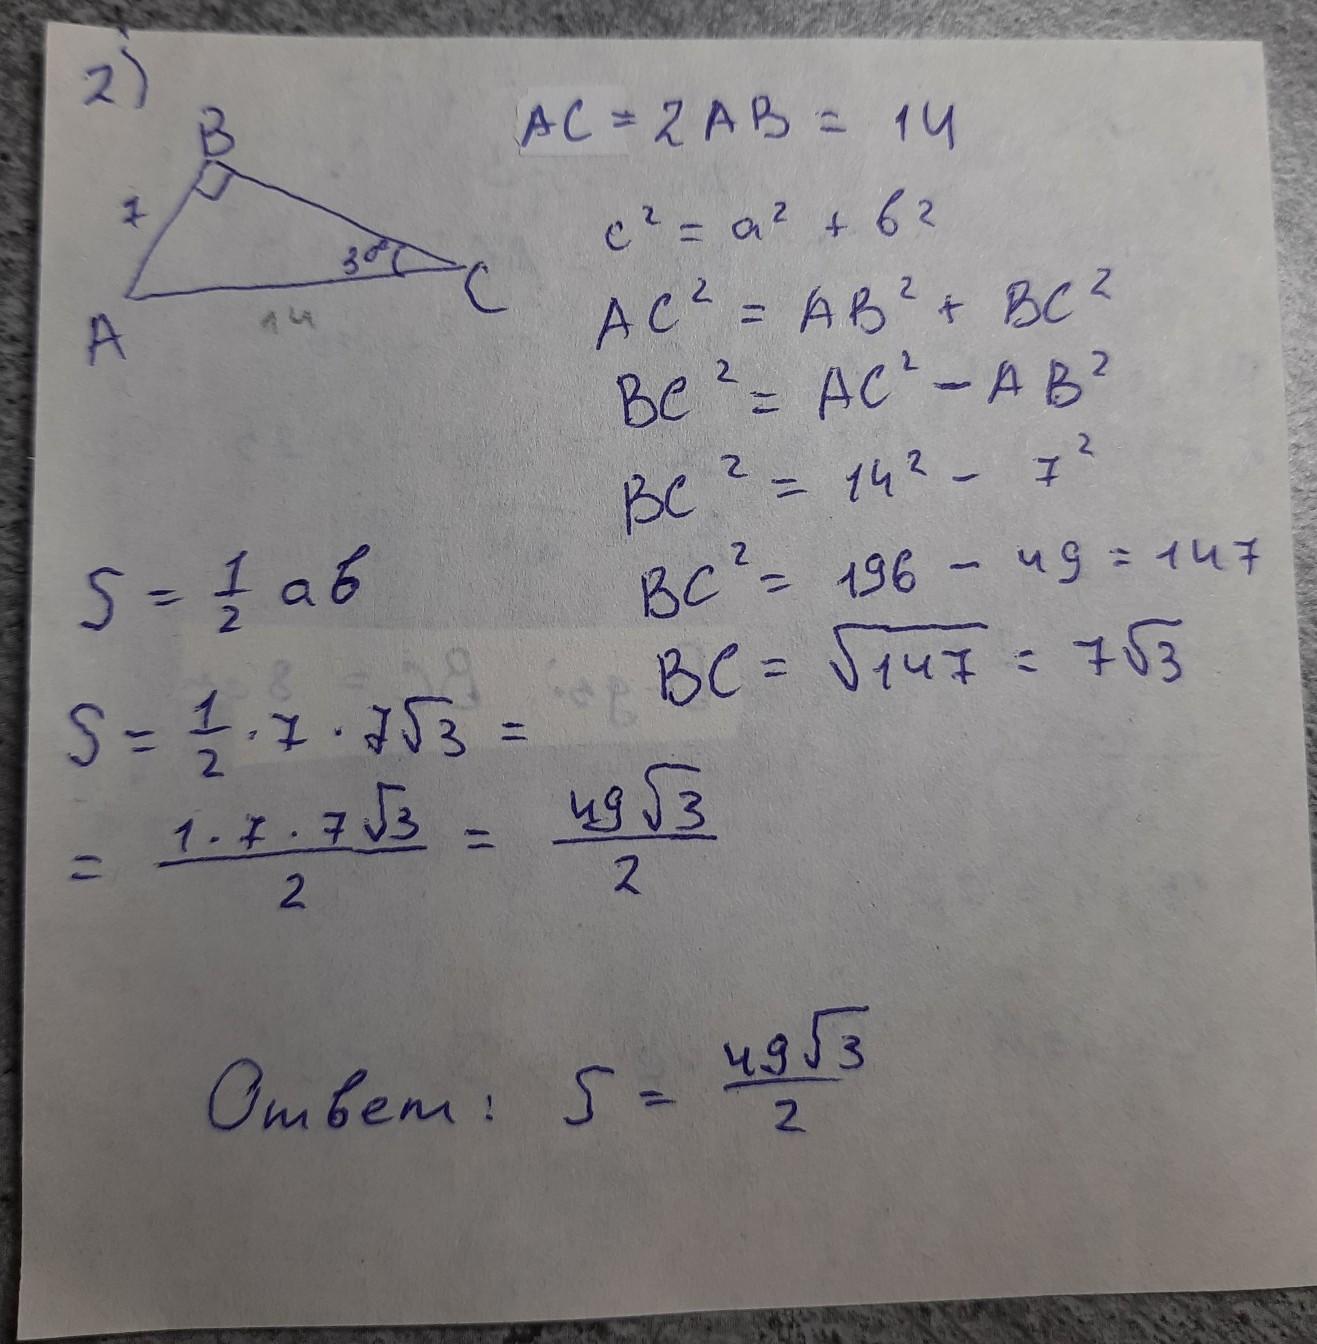 2)
B
7
30°
A
14
C
AC = 2AB = 14
c² = a² + b²
AC² = AB² + BC²
BC² = AC² - AB²
BC² = 14² - 7²
BC² = 196 - 49 = 147
BC = √147 = 7√3
S = 1/2 ab
S = 1/2 · 7 · 7√3 =
= (1 · 7 · 7√3)/2 = 49√3/2
Ответ: S = 49√3/2